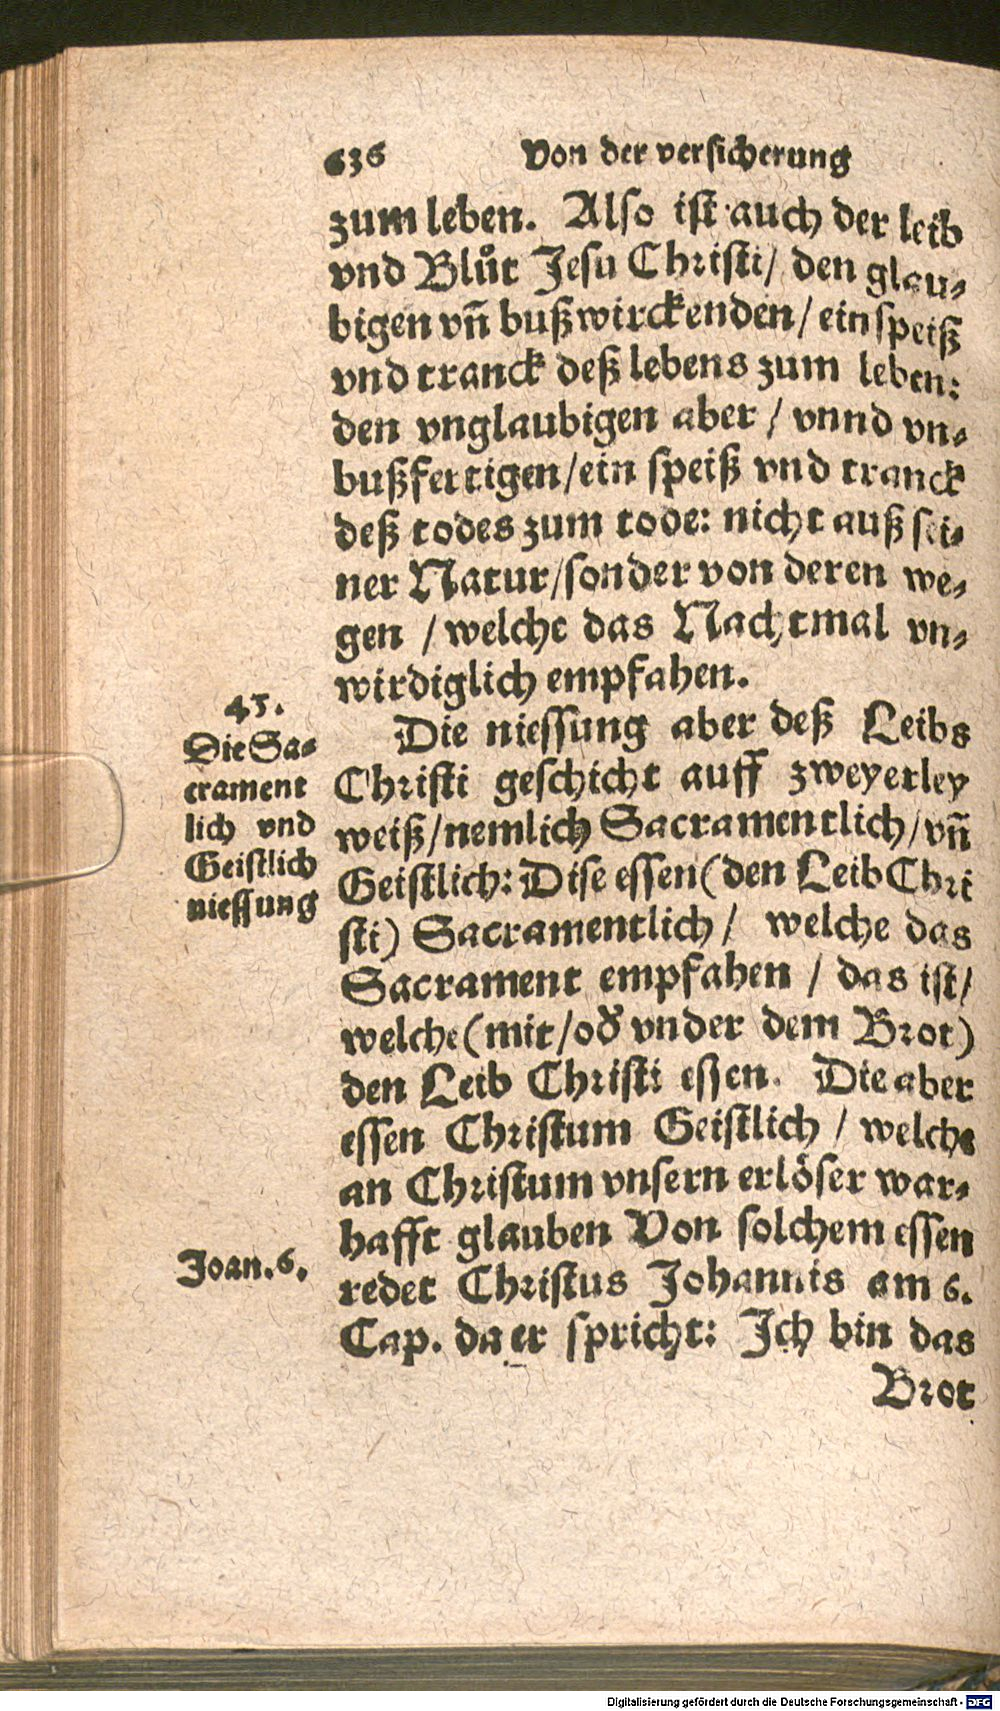 636 Von der versicherung
zum leben. Also ist auch der leib
vnd Blůt Jesu Christi/ den glau-
bigen vñ bußwirckenden/ ein speiß
vnd tranck deß lebens zum leben:
den vnglaubigen aber / vnnd vn-
bußfertigen/ein speiß vnd tranck
deß todes zum tode: nicht auß sei-
ner Natur/sonder von deren we-
gen / welche das Nachtmal vn-
wirdiglich empfahen.
45.
Die Sa-
crament
lich vnd
Geistlich
niessung
Die niessung aber deß Leibs
Christi geschicht auff zweyerley
weiß/nemlich Sacramentlich/vñ
Geistlich: Dise essen (den Leib Chri
sti) Sacramentlich/ welche das
Sacrament empfahen / das ist/
welche (mit/od’ vnder dem Brot)
den Leib Christi essen. Die aber
essen Christum Geistlich / welche
an Christum vnsern erlöser war-
hafft glauben Von solchem essen
Joan.6.
redet Christus Johannis am 6.
Cap. da er spricht: Ich bin das
Brot
Digitalisierung gefördert durch die Deutsche Forschungsgemeinschaft - DFG